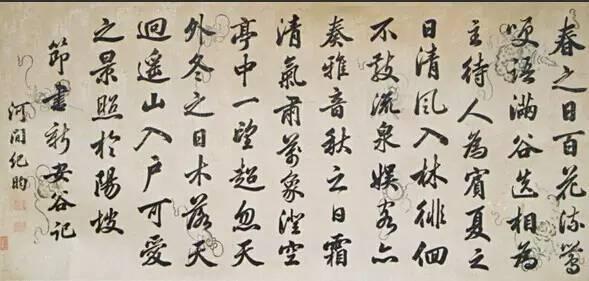 春之日百花流鶯
哽語滿谷迭相為
主待人為賓夏之
日清風入林徘徊
不散流泉娛客亦
奏雅音秋之日霜
清氣肅萬象澄空
亭中一望超忽天
外冬之日木落天
迥遙山入戶可愛
之景照於陽坡
節書新安谷記
河間紀昀